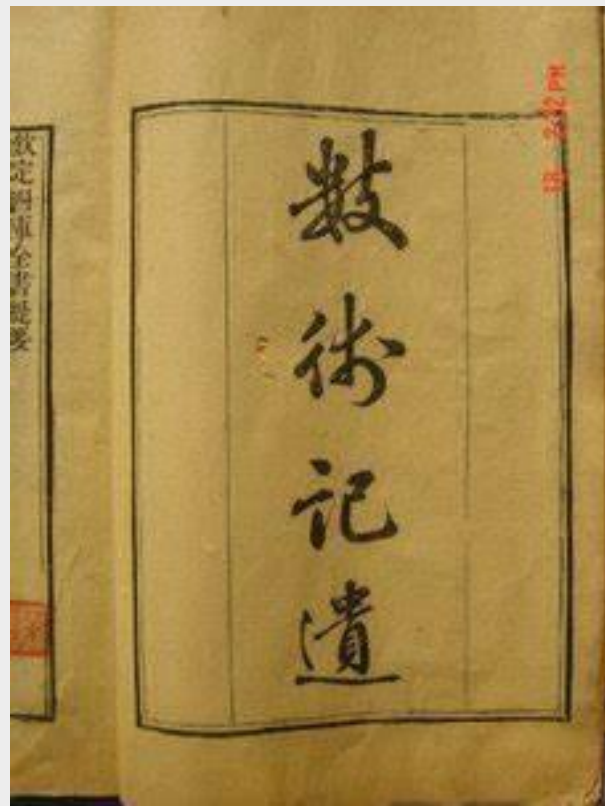 數術記遺
欽定四庫全書提要